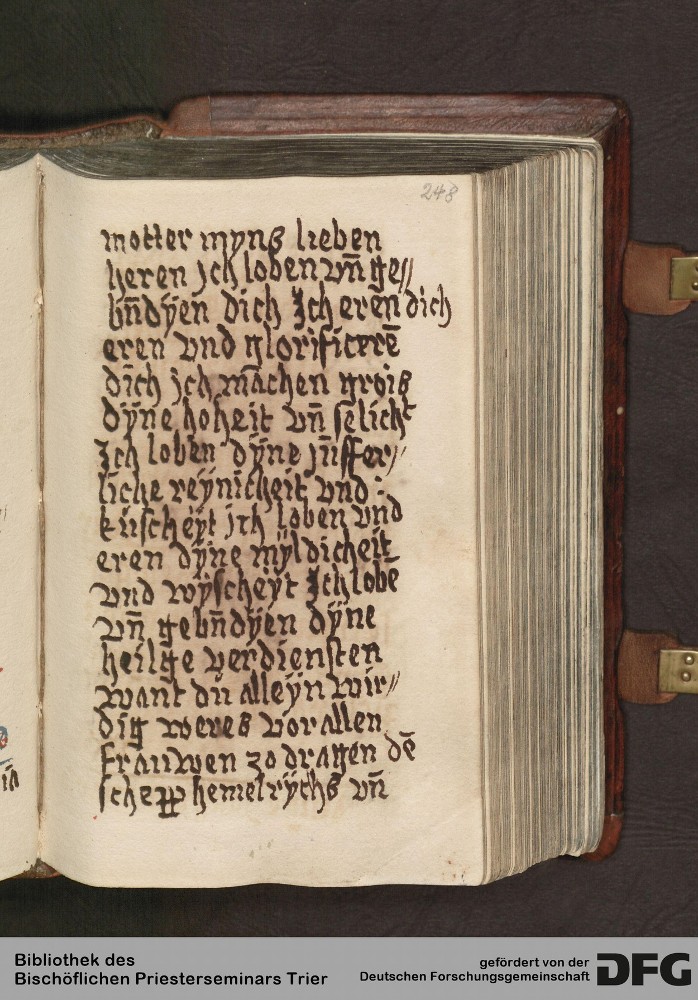 248
motter myns lieben
heren jch loben vn̄ ge//
bn̄dÿen dich Jch eren dich
eren vnd glorificerē
dich jch machen grois
dÿne hoheit vn̄ selicht
Jch loben dÿne jūffer//
liche reÿnicheit vnd
kuscheÿt jch loben vnd
eren dÿne mÿldicheit
vnd wÿscheÿt Jch lobē
vn̄ gebn̄dÿen dÿne
heilge verdiensten
want du alleÿn wir//
dig weres vor allen
frauwen zo dragen dē
schepp hemelrÿchs vn̄
Bibliothek des
Bischöflichen Priesterseminars Trier
gefördert von der
Deutschen Forschungsgemeinschaft
DFG